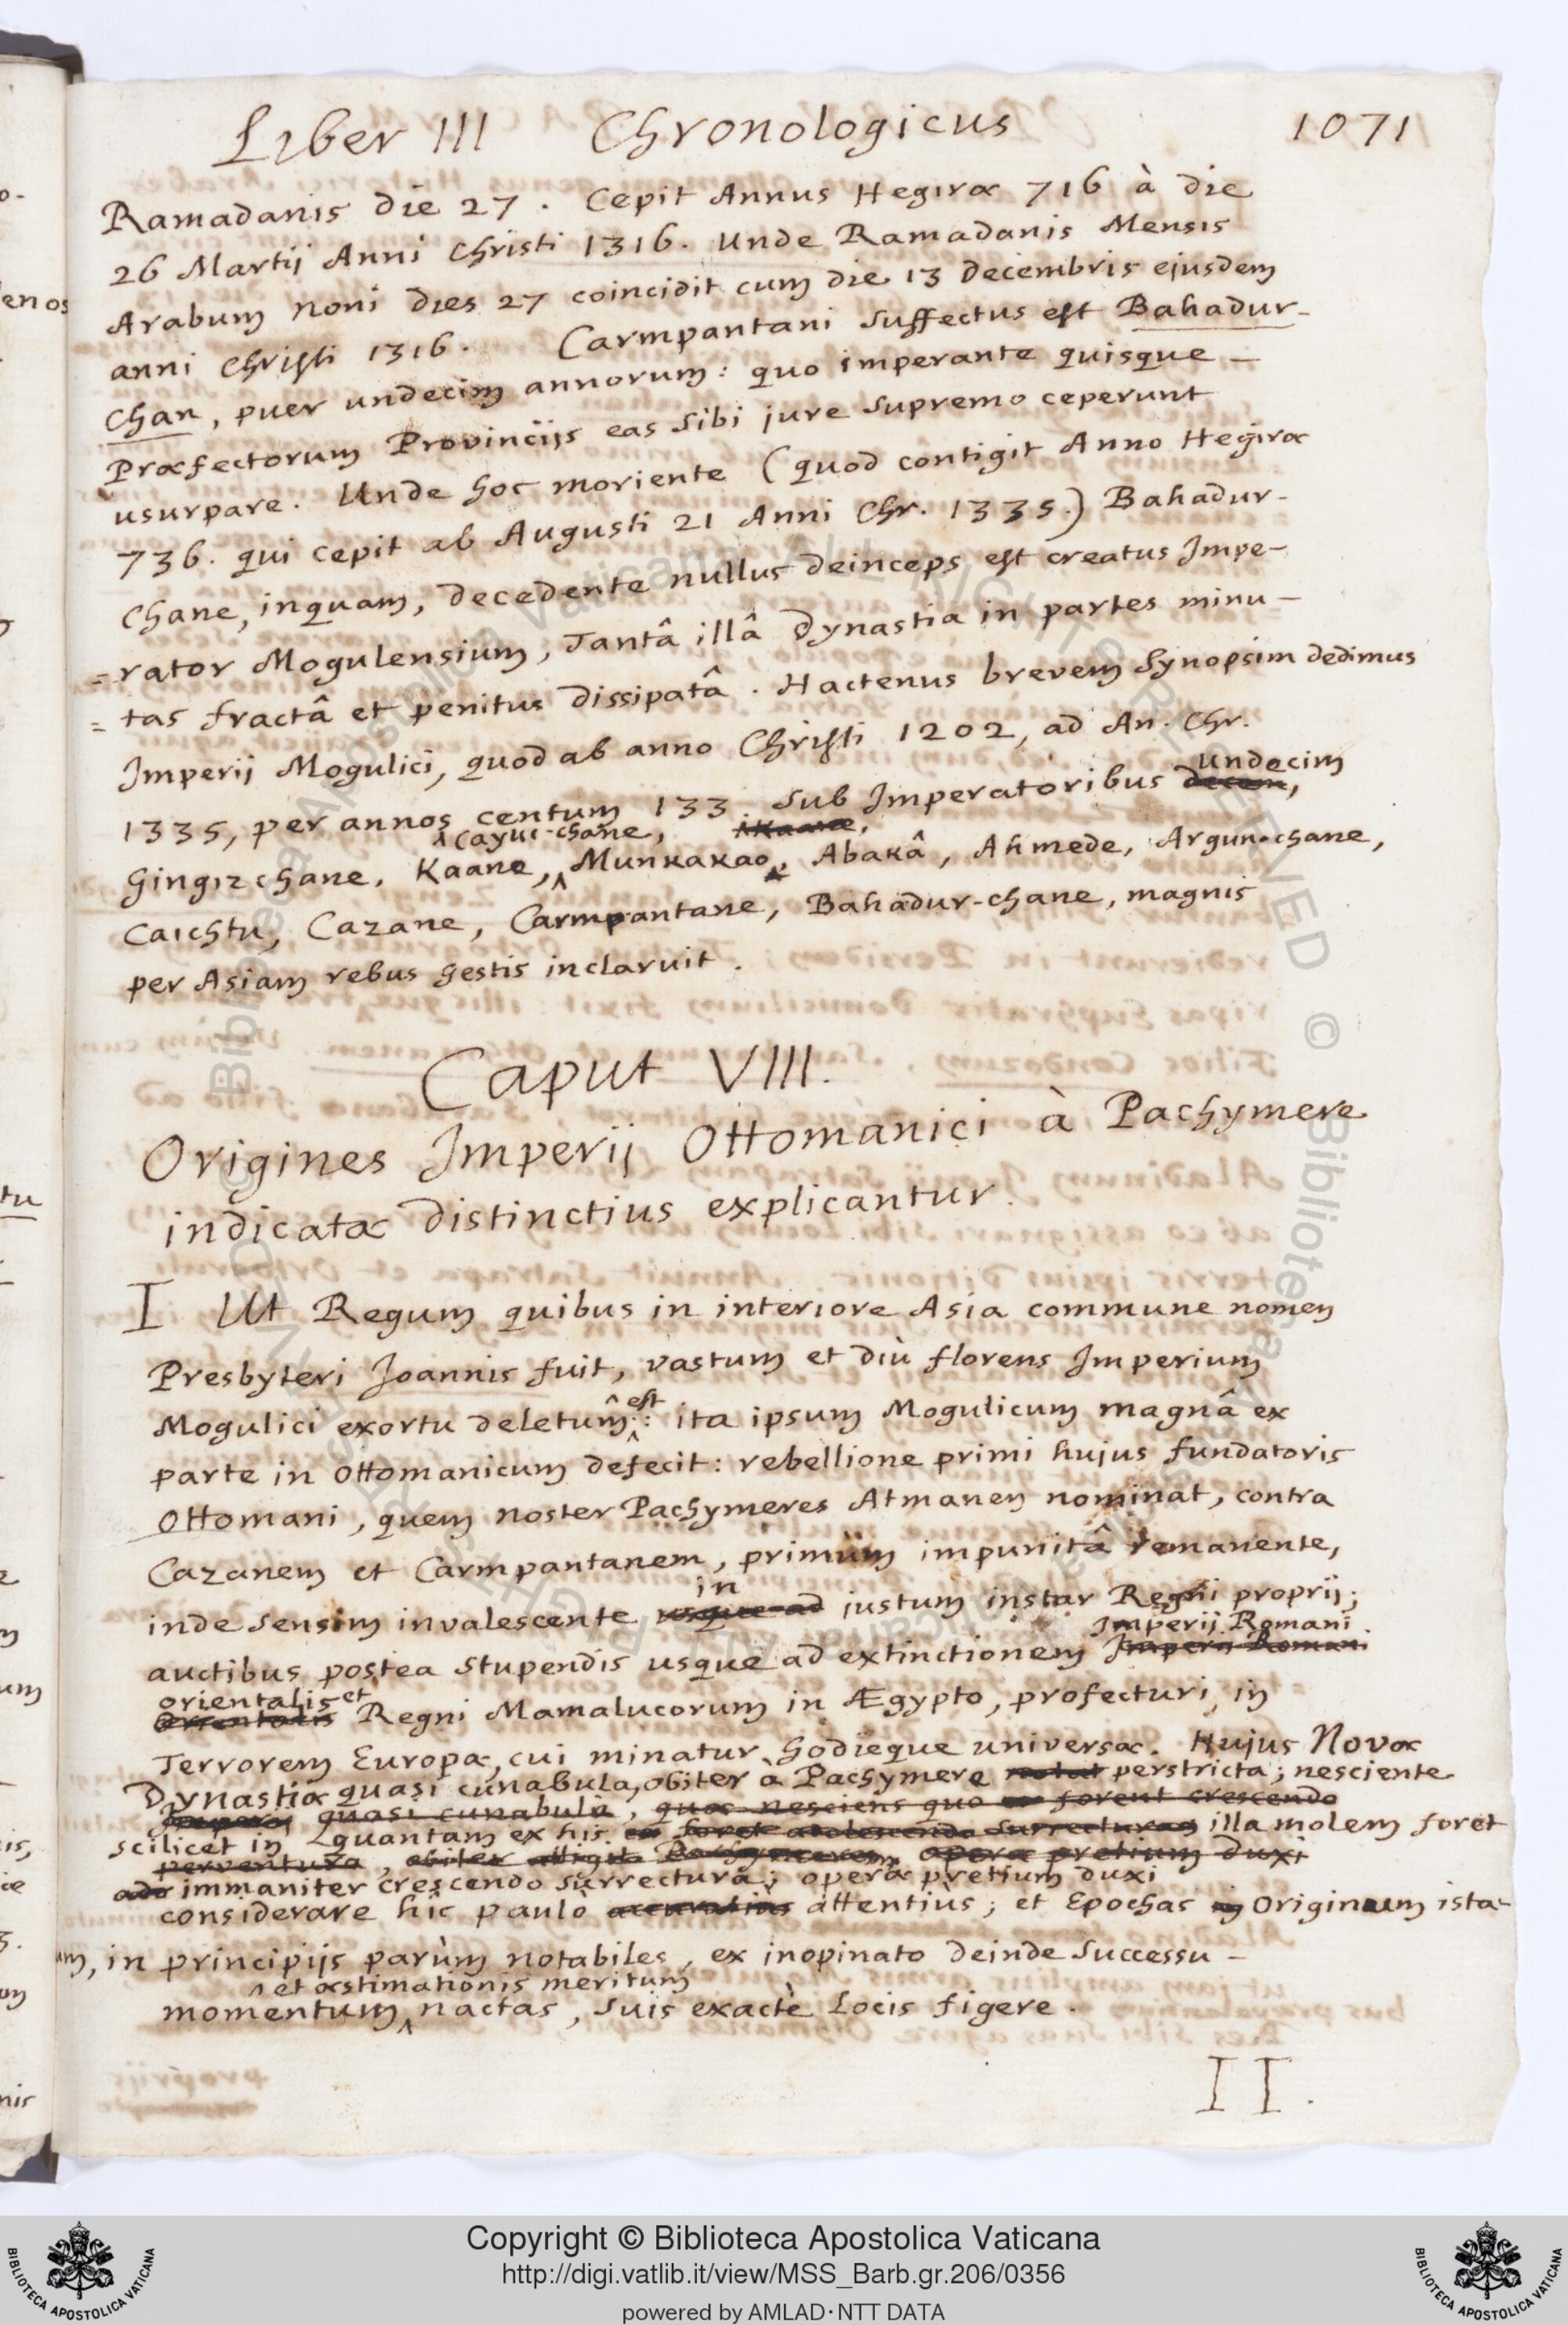 Liber III Chronologicus 1071
Ramadanis die 27. Cepit Annus Hegiræ 716 à die
26 Martij Anni Christi 1316. Unde Ramadanis Mensis
Arabum noni dies 27 coincidit cum die 13 decembris ejusdem
anni Christi 1316. Carmpantani suffectus est Bahadur-
chan, puer undecim annorum: quo imperante quisque
Præfectorum Provincijs eas sibi jure supremo ceperunt
usurpare. Unde hoc moriente (quod contigit Anno Hegiræ
736. qui cepit ab Augusti 21 Anni Chr. 1335.) Bahadur-
chane, inquam, decedente nullus deinceps est creatus Impe-
=rator Mogulensium, Tantâ illâ Dynastia in partes minu-
=tas fractâ et penitus dissipatâ. Hactenus brevem Synopsim dedimus
Imperij Mogulici, quod ab anno Christi 1202, ad An. Chr.
undecim
1335, per annos centum 133. sub Imperatoribus decem,
Cayuc-chane,
Gingizchane, Kaane, Munkakao, Abakâ, Ahmede, Argun-chane,
Caichtu, Cazane, Carmpantane, Bahadur-chane, magnis
per Asiam rebus gestis inclaruit.
Caput VIII.
Origines Imperij Ottomanici à Pachymere
indicatæ distinctius explicantur.
I Ut Regum quibus in interiore Asia commune nomen
Presbyteri Joannis fuit, vastum et diù florens Imperium
est
Mogulici exortu deletum: ita ipsum Mogulicum magnâ ex
parte in Ottomanicum defecit: rebellione primi hujus fundatoris
Ottomani, quem noster Pachymeres Atmanen nominat, contra
Cazanem et Carmpantanem, primùm impunitâ remanente,
in
inde sensim invalescente usque ad justum instar Regni proprij;
Imperij Romani
auctibus postea stupendis usque ad extinctionem Imperii Romani
orientalis et
Orientalis Regni Mamalucorum in Ægypto, profecturi, in
Terrorem Europæ, cui minatur hodieque universæ. Hujus Novæ
Dynastiæ quasi cunabula, obiter à Pachymere perstricta; nesciente
quasi cunabula, quæ nesciens quo forent crescendo
scilicet in quantam ex his illa molem foret
perventura, obiter attigit Pachymeres, operæ pretium duxi
immaniter crescendo surrectura; operæ pretium duxi
considerare hic paulò accuratius attentiùs; et Epochas Originum ista-
um, in principijs parùm notabiles, ex inopinato deinde successu
et æstimationis meritum
momentum nactas, suis exactè locis figere.
II.
Copyright © Biblioteca Apostolica Vaticana
http://digi.vatlib.it/view/MSS_Barb.gr.206/0356
powered by AMLAD·NTT DATA